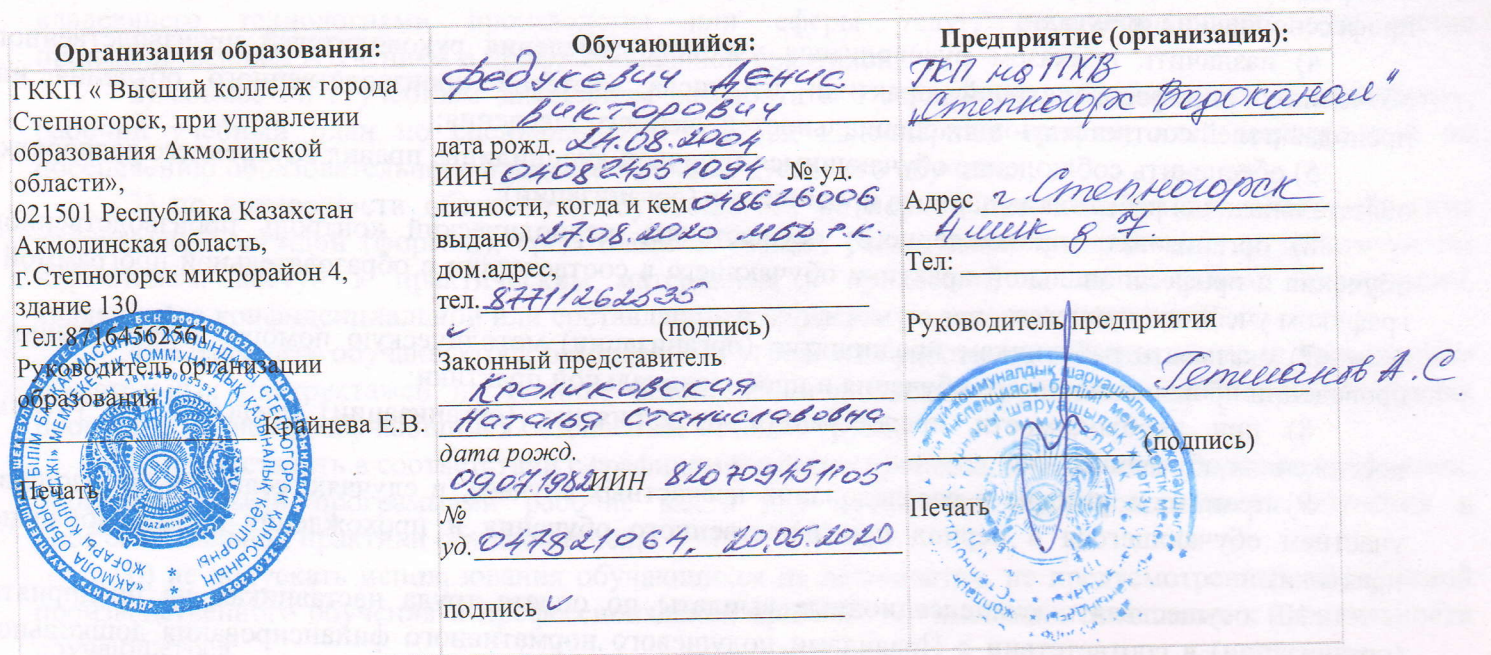 Организация образования:
ГККП « Высший колледж города
Степногорск, при управлении
образования Акмолинской
области»,
021501 Республика Казахстан
Акмолинская область,
г.Степногорск микрорайон 4,
здание 130
Тел:87164562561
Руководитель организации
образования
Крайнева Е.В.
Печать
Обучающийся:
Федукевич Денис
Викторович
дата рожд. 24.08.2004
ИИН 040824551094 № уд.
личности, когда и кем 048626006
выдано) 27.08.2020 МВД Р.К.
дом.адрес.
тел. 87711262535
(подпись)
Законный представитель
Кроликовская
Наталья Станиславовна
дата рожд.
09.07.1982 ИИН 820709451105
№
уд. 047821064, 20.05.2020
подпись
Предприятие (организация):
ГКП на ПХВ
„Степногорск Водоканал"
Адрес г Степногорск
4 мик д 7.
Тел:
Руководитель предприятия
Гетманов А.С
(подпись)
Печать